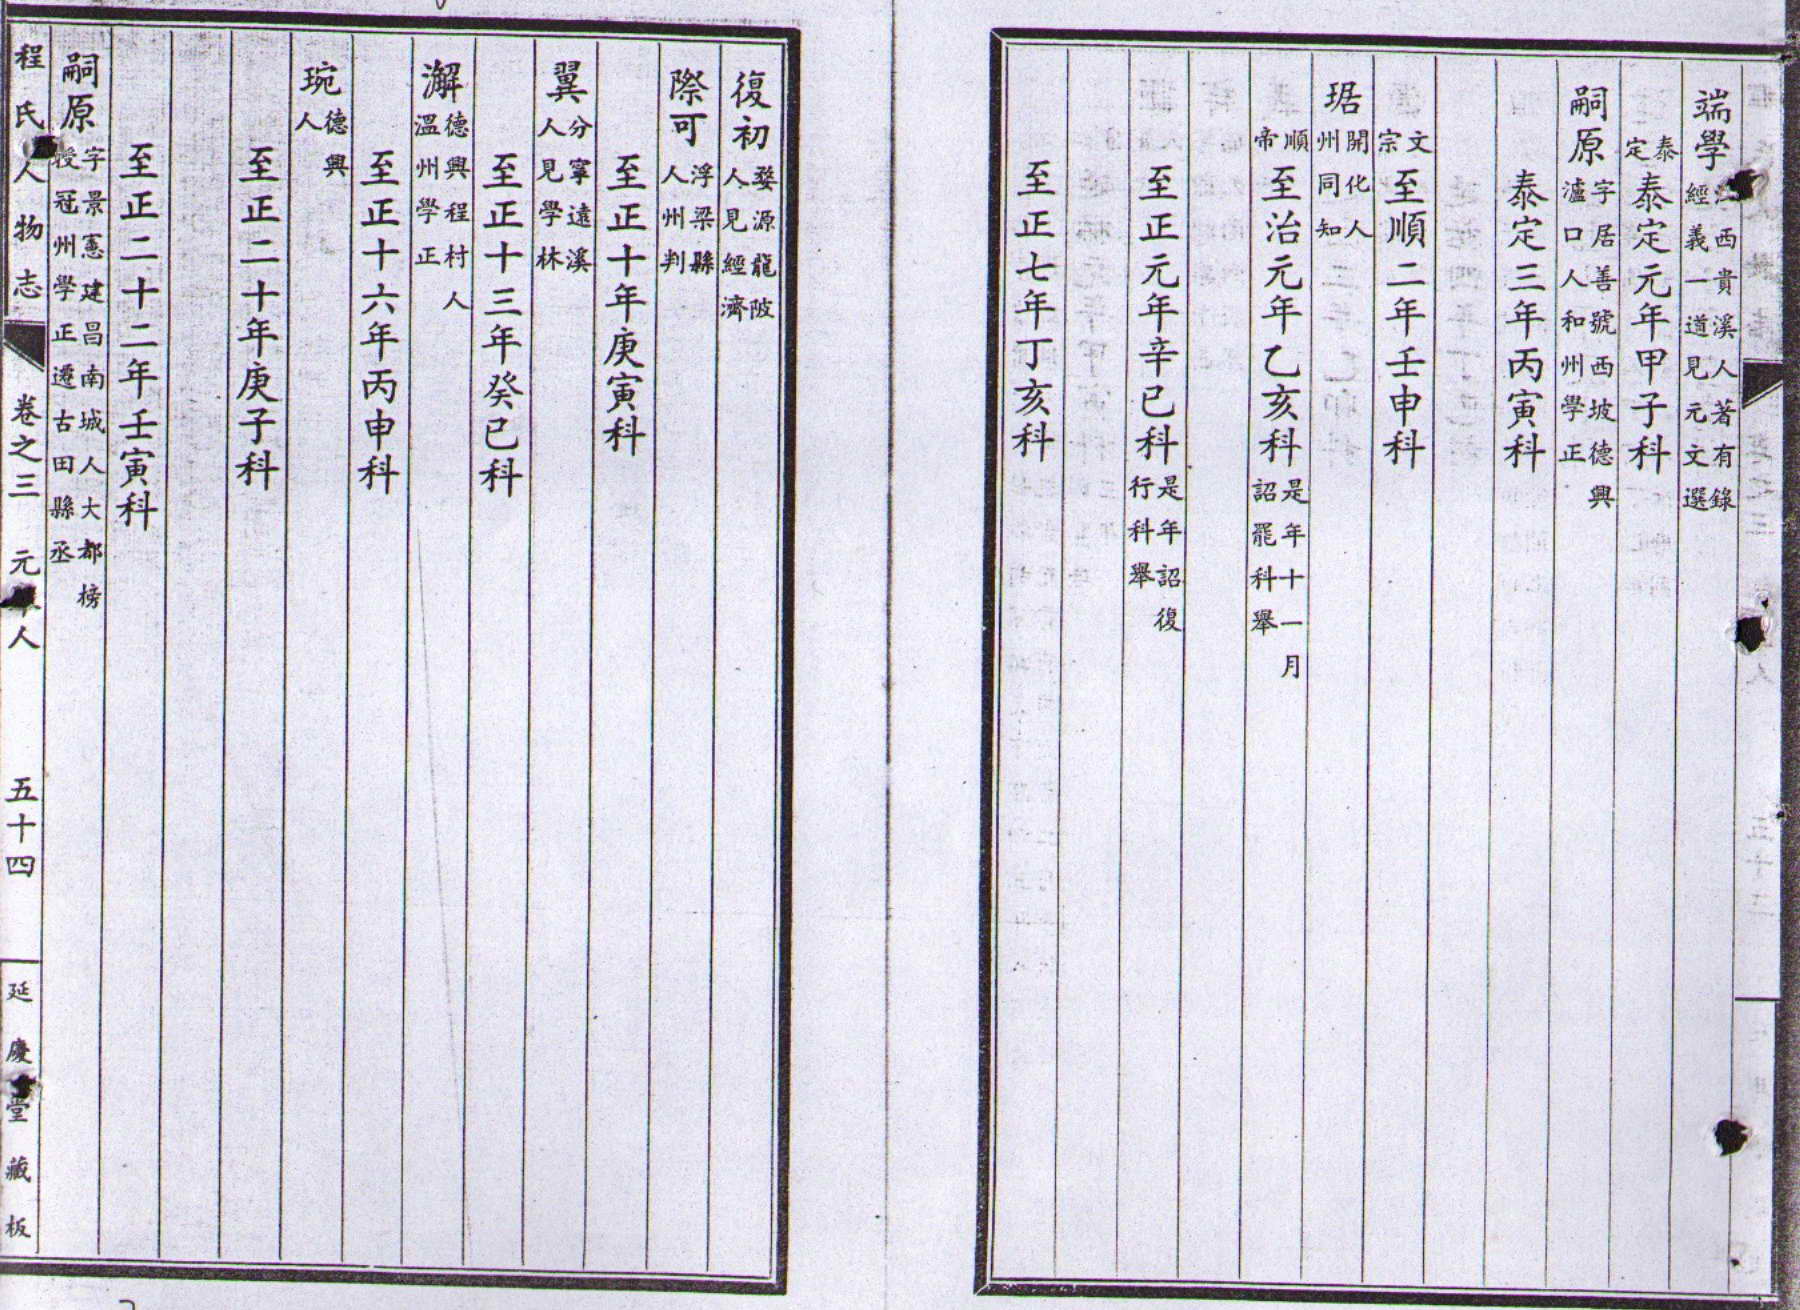 端學西貴溪人著有錄經義一道見元文選
泰定泰定元年甲子科
嗣原字居善號西坡德興瀘口人和州學正
泰定三年丙寅科
文宗至順二年壬申科
琚開化人州同知
順帝至治元年乙亥科是年十一月詔罷科舉
至正元年辛巳科是年詔復行科舉
至正七年丁亥科
復初婺源龍陂人見經濟
際可浮梁縣人州判
至正十年庚寅科
翼分寧遠溪人見學林
至正十三年癸巳科
澥德興程村人溫州學正
至正十六年丙申科
琬德興人
至正二十年庚子科
至正二十二年壬寅科
嗣原字景憲建昌南城人大都榜授冠州學正遷古田縣丞
程氏人物志 卷之三 元 人 五十四 延慶堂藏板